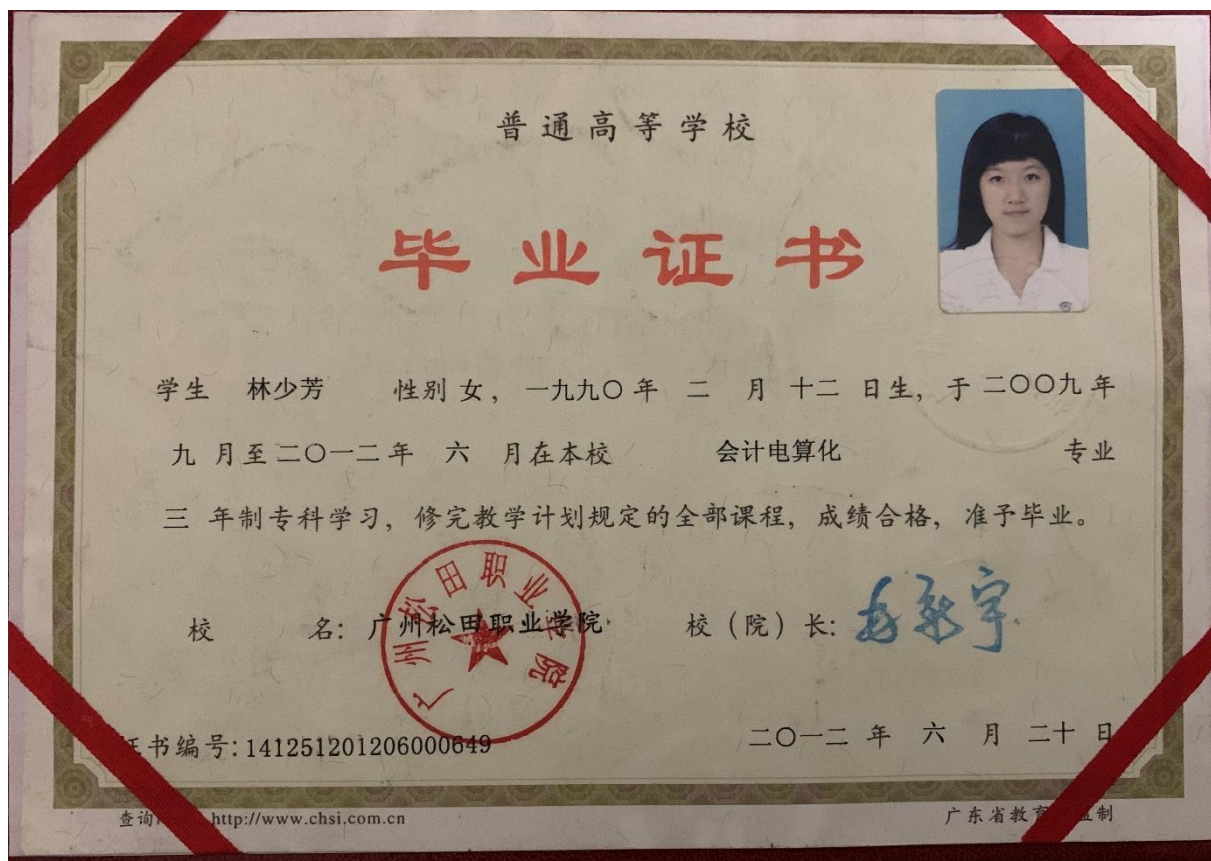 普通高等学校
毕业证书
学生 林少芳 性别 女，一九九〇年 二 月 十二 日生，于 二〇〇九年
九 月至二〇一二年 六 月在本校 会计电算化 专业
三 年制专科学习，修完教学计划规定的全部课程，成绩合格，准予毕业。
校 名：广州松田职业学院 校（院）长：
广州松田职业学院
书编号：141251201206000649 二〇一二 年 六 月 二十 日
查询 http://www.chsi.com.cn 广东省教育 监制